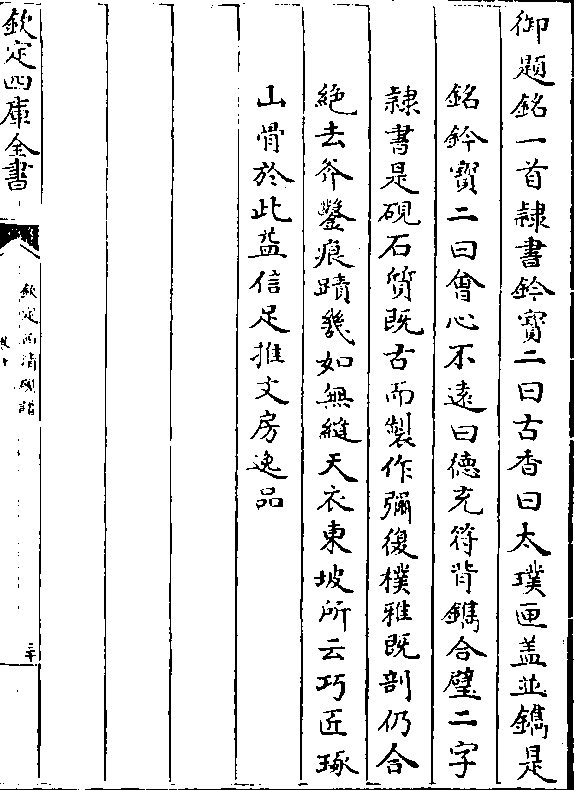 御題銘一首隸書鈐寶二曰古香曰太璞匣盖並鐫是
銘鈐寶二曰㑹心不逺曰德充符背鐫合璧二字
隸書是硯石質既古而製作彌復樸雅既剖仍合
絶去斧鑿痕蹟幾如無縫天衣東坡所云巧匠琢
山骨於此益信足推文房逸品
欽定四庫全書
欽定西清硯譜
卷十
二十